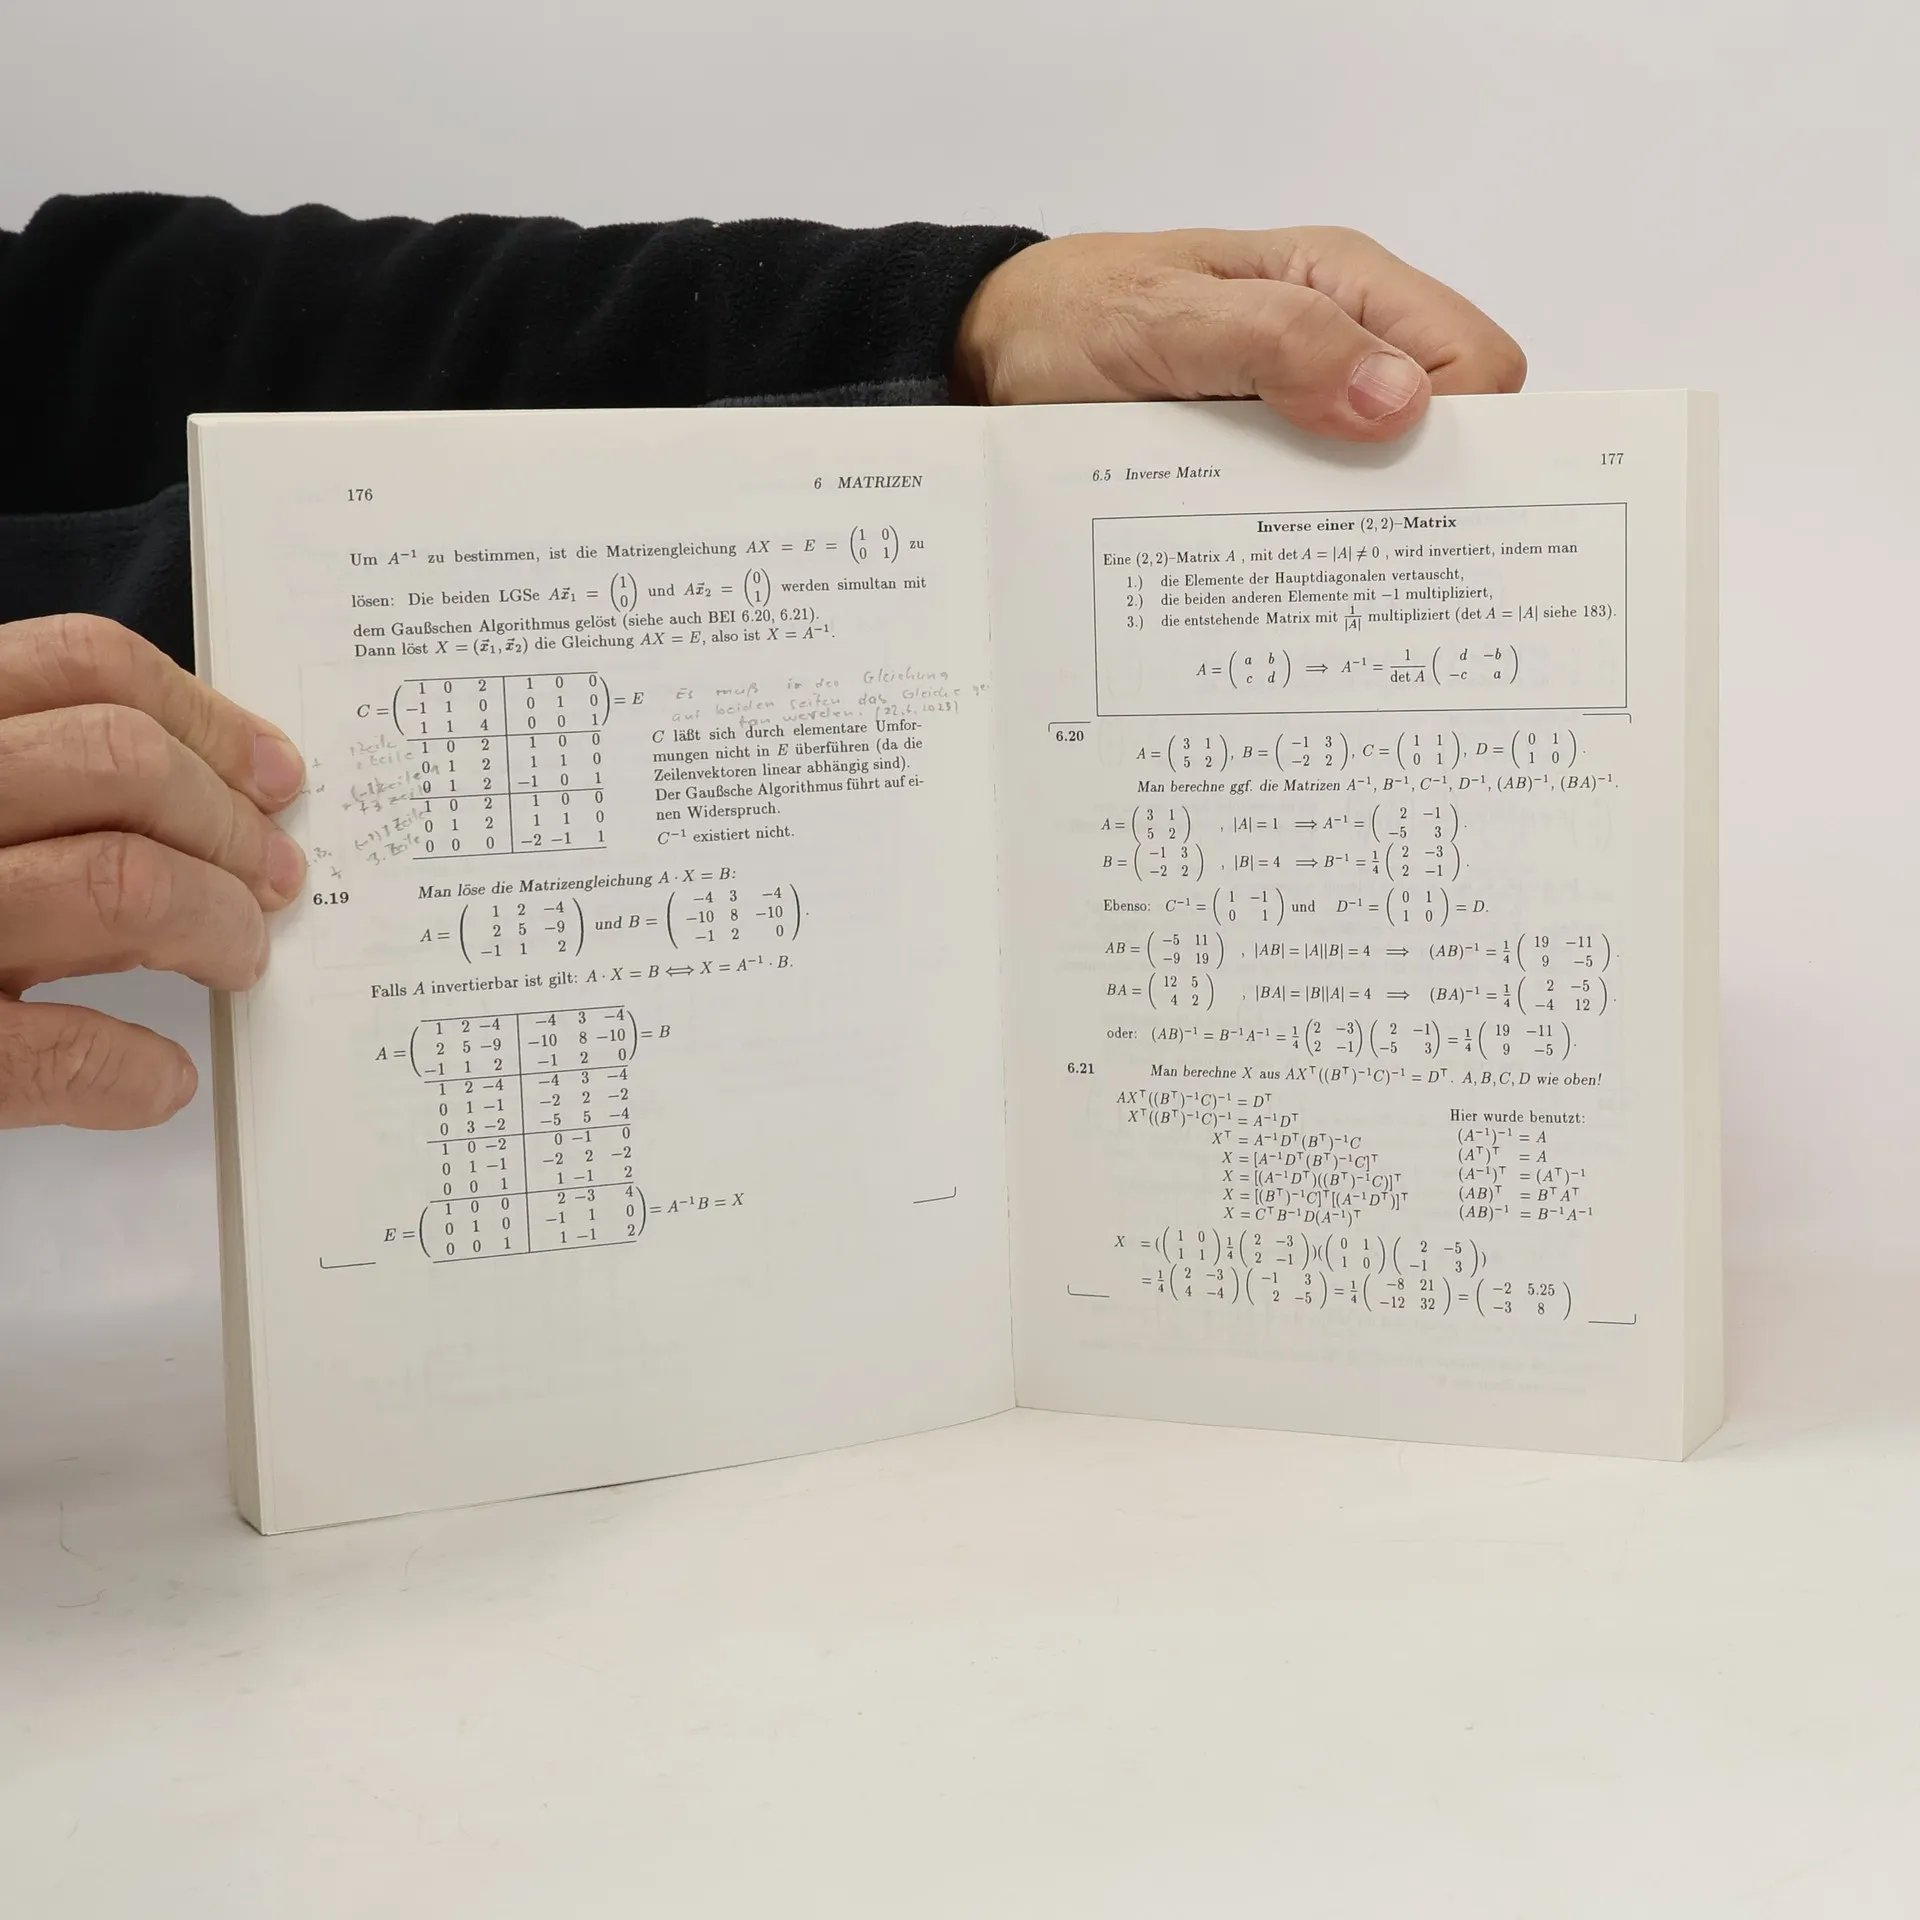 176
6 MATRIZEN
Um A⁻¹ zu bestimmen, ist die Matrizengleichung AX = E = (1 0; 0 1) zu
lösen: Die beiden LGSe Ax⃗₁ = (1; 0) und Ax⃗₂ = (0; 1) werden simultan mit
dem Gaußschen Algorithmus gelöst (siehe auch BEI 6.20, 6.21).
Dann löst X = (x⃗₁, x⃗₂) die Gleichung AX = E, also ist X = A⁻¹.
Es muß in der Gleichung
auf beiden Seiten das Gleiche ge
tan werden.
C = ( 1 0 2 | 1 0 0
−1 1 0 | 0 1 0
1 1 4 | 0 0 1 ) = E
1 0 2 | 1 0 0
0 1 2 | 1 1 0
0 1 2 | −1 0 1
1 0 2 | 1 0 0
0 1 2 | 1 1 0
0 0 0 | −2 −1 1
C läßt sich durch elementare Umfor-
mungen nicht in E überführen (da die
Zeilenvektoren linear abhängig sind).
Der Gaußsche Algorithmus führt auf ei-
nen Widerspruch.
C⁻¹ existiert nicht.
6.19 Man löse die Matrizengleichung A · X = B:
A = (1 2 −4; 2 5 −9; −1 1 2) und B = (−4 3 −4; −10 8 −10; −1 2 0).
Falls A invertierbar ist gilt: A · X = B ⟺ X = A⁻¹ · B.
A = ( 1 2 −4 | −4 3 −4
2 5 −9 | −10 8 −10
−1 1 2 | −1 2 0 ) = B
1 2 −4 | −4 3 −4
0 1 −1 | −2 2 −2
0 3 −2 | −5 5 −4
1 0 −2 | 0 −1 0
0 1 −1 | −2 2 −2
0 0 1 | 1 −1 2
E = ( 1 0 0 | 2 −3 4
0 1 0 | −1 1 0
0 0 1 | 1 −1 2 ) = A⁻¹B = X
6.5 Inverse Matrix
177
Inverse einer (2, 2)–Matrix
Eine (2, 2)–Matrix A , mit det A = |A| ≠ 0 , wird invertiert, indem man
1.) die Elemente der Hauptdiagonalen vertauscht,
2.) die beiden anderen Elemente mit −1 multipliziert,
3.) die entstehende Matrix mit 1/|A| multipliziert (det A = |A| siehe 183).
A = (a b; c d) ⟹ A⁻¹ = 1/det A (d −b; −c a)
6.20
A = (3 1; 5 2), B = (−1 3; −2 2), C = (1 1; 0 1), D = (0 1; 1 0).
Man berechne ggf. die Matrizen A⁻¹, B⁻¹, C⁻¹, D⁻¹, (AB)⁻¹, (BA)⁻¹.
A = (3 1; 5 2) , |A| = 1 ⟹ A⁻¹ = (2 −1; −5 3).
B = (−1 3; −2 2) , |B| = 4 ⟹ B⁻¹ = ¼ (2 −3; 2 −1).
Ebenso: C⁻¹ = (1 −1; 0 1) und D⁻¹ = (0 1; 1 0) = D.
AB = (−5 11; −9 19) , |AB| = |A||B| = 4 ⟹ (AB)⁻¹ = ¼ (19 −11; 9 −5).
BA = (12 5; 4 2) , |BA| = |B||A| = 4 ⟹ (BA)⁻¹ = ¼ (2 −5; −4 12).
oder: (AB)⁻¹ = B⁻¹A⁻¹ = ¼ (2 −3; 2 −1) (2 −1; −5 3) = ¼ (19 −11; 9 −5).
6.21 Man berechne X aus AXᵀ((Bᵀ)⁻¹C)⁻¹ = Dᵀ. A, B, C, D wie oben!
AXᵀ((Bᵀ)⁻¹C)⁻¹ = Dᵀ
Xᵀ((Bᵀ)⁻¹C)⁻¹ = A⁻¹Dᵀ
Xᵀ = A⁻¹Dᵀ(Bᵀ)⁻¹C
X = [A⁻¹Dᵀ(Bᵀ)⁻¹C]ᵀ
X = [(A⁻¹Dᵀ)((Bᵀ)⁻¹C)]ᵀ
X = [(Bᵀ)⁻¹C]ᵀ[(A⁻¹Dᵀ)]ᵀ
X = CᵀB⁻¹D(A⁻¹)ᵀ
Hier wurde benutzt:
(A⁻¹)⁻¹ = A
(Aᵀ)ᵀ = A
(A⁻¹)ᵀ = (Aᵀ)⁻¹
(AB)ᵀ = BᵀAᵀ
(AB)⁻¹ = B⁻¹A⁻¹
X = ((1 0; 1 1) ¼ (2 −3; 2 −1))((0 1; 1 0) (2 −5; −1 3))
= ¼ (2 −3; 4 −4) (−1 3; 2 −5) = ¼ (−8 21; −12 32) = (−2 5.25; −3 8)